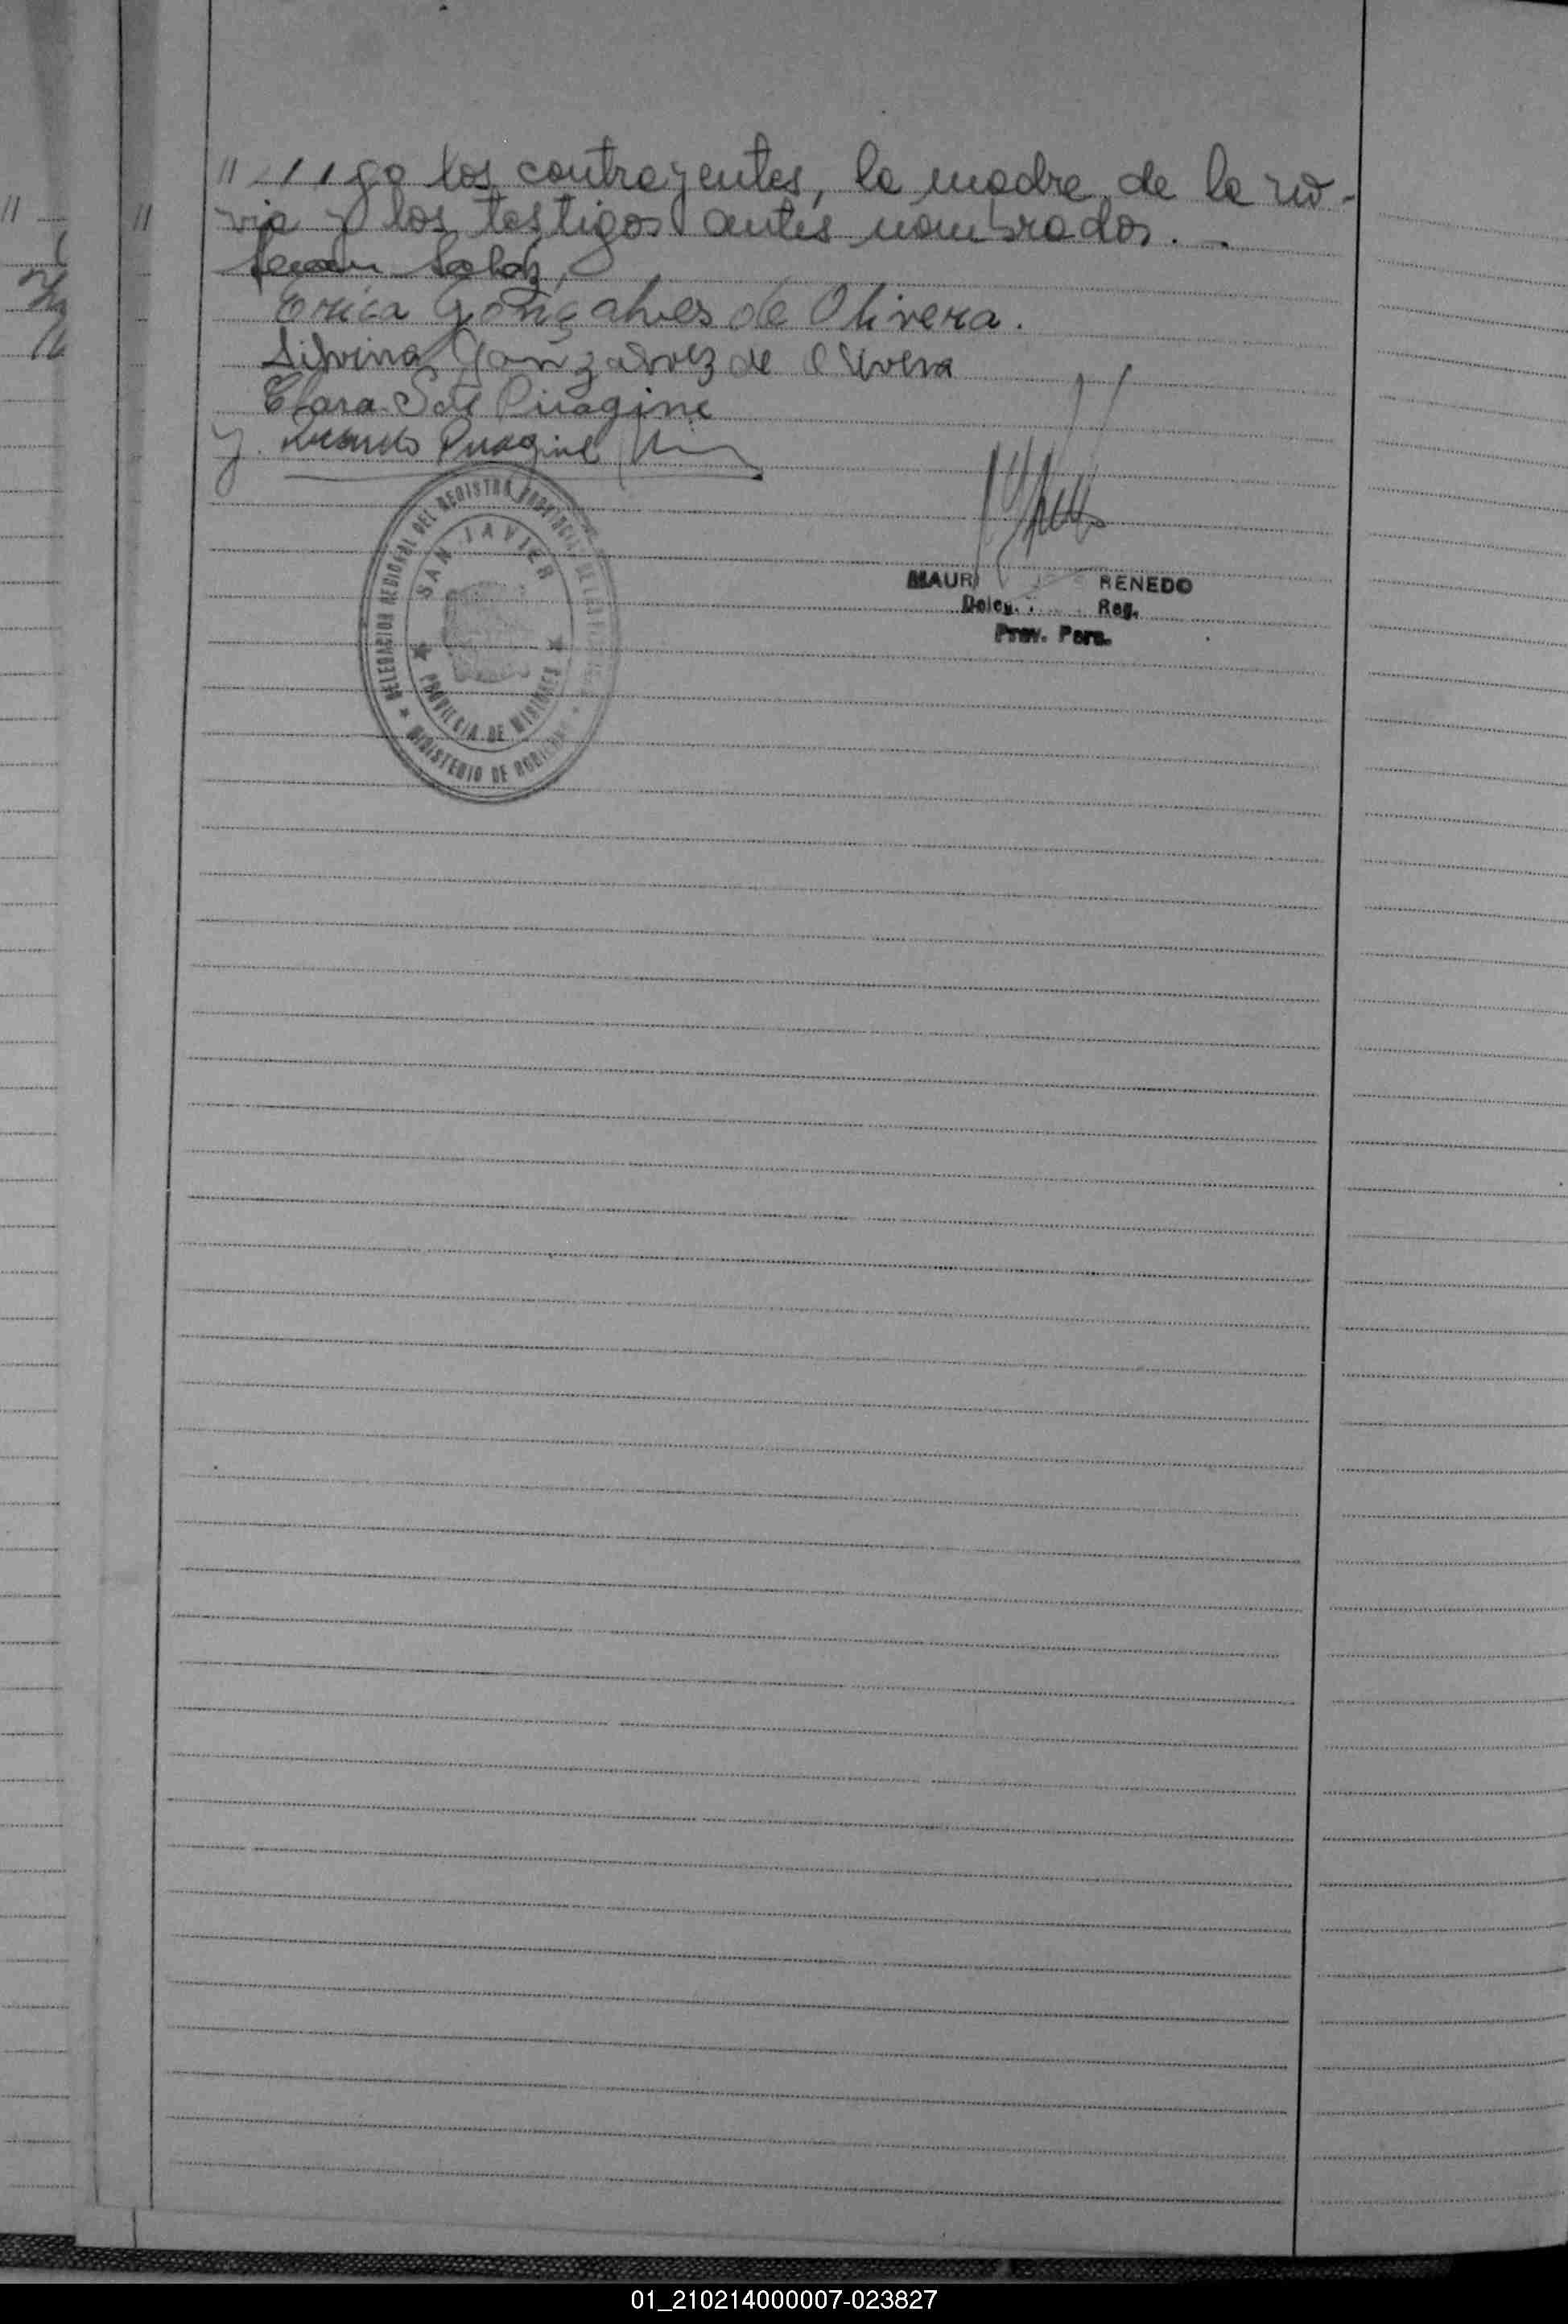 // //go los contrayentes, la madre de la no-
via y los testigos antes nombrados. -
Erica Gonçalves de Olivera.
Silvina Gonzalvez de Olivera
Clara Sos Piragine
Piragine
DELEGACION REGIONAL DEL REGISTRO PROVINCIAL DE LAS PERSONAS
SAN JAVIER
PROVINCIA DE MISIONES
MINISTERIO DE GOBIERNO
MAURI RENEDO
Deleg. Reg.
Prov. Pers.
01_210214000007-023827